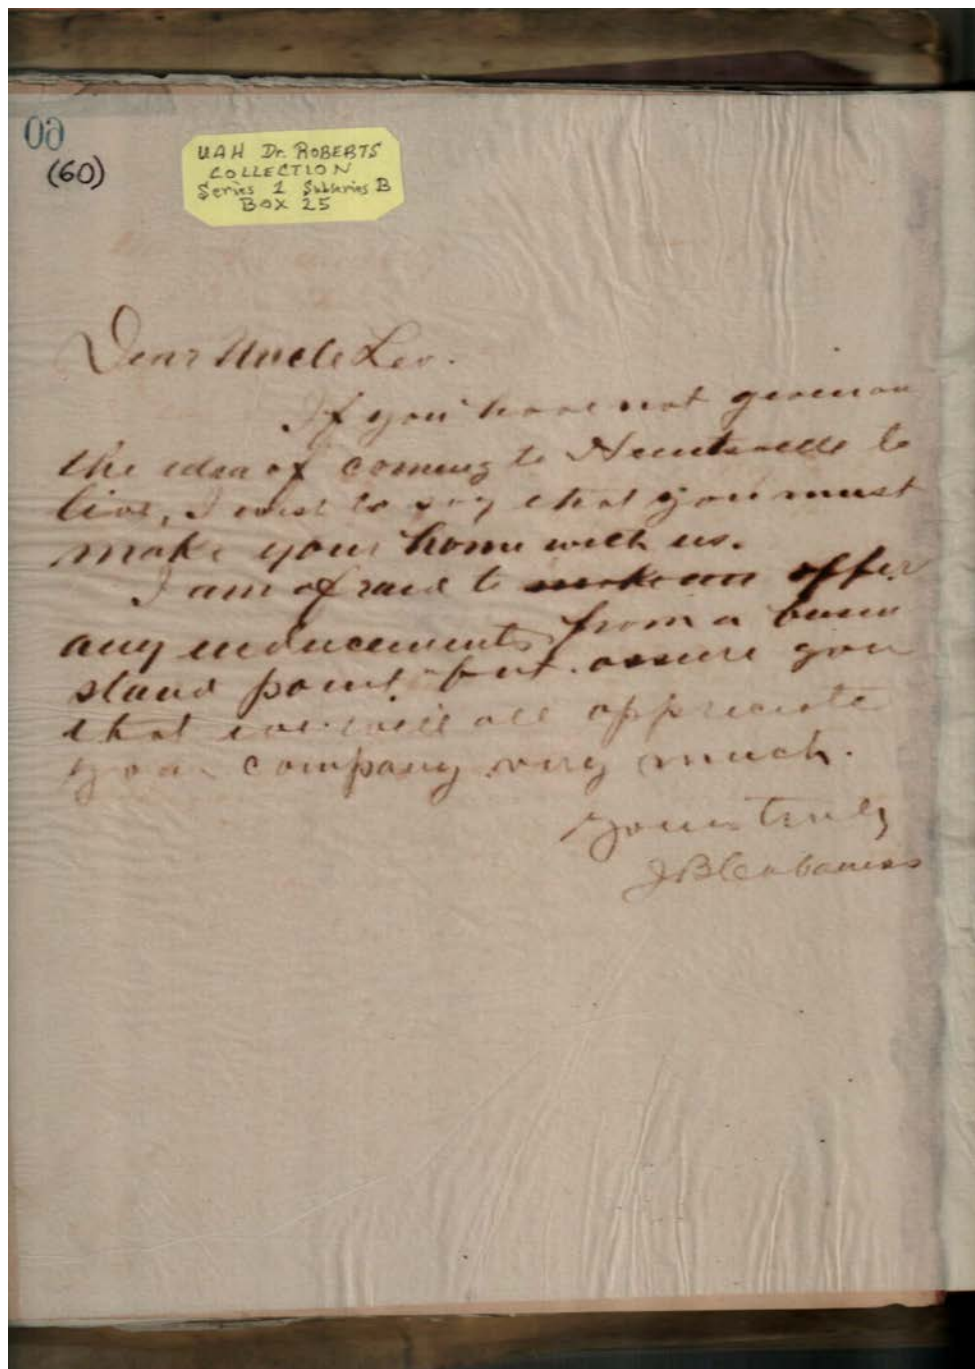 60
(60)
UAH Dr. ROBERTS
COLLECTION
Series 1 Subseries B
BOX 25
Dear Uncle Leo.
If you have not given out
the idea of coming to Huntsville to
live, I wish to say that you must
make your home with us.
I am afraid to make an offer
any inducements from a
stand point but assure you
that we will all appreciate
your company very much.
Yours truly
J B Cabaniss